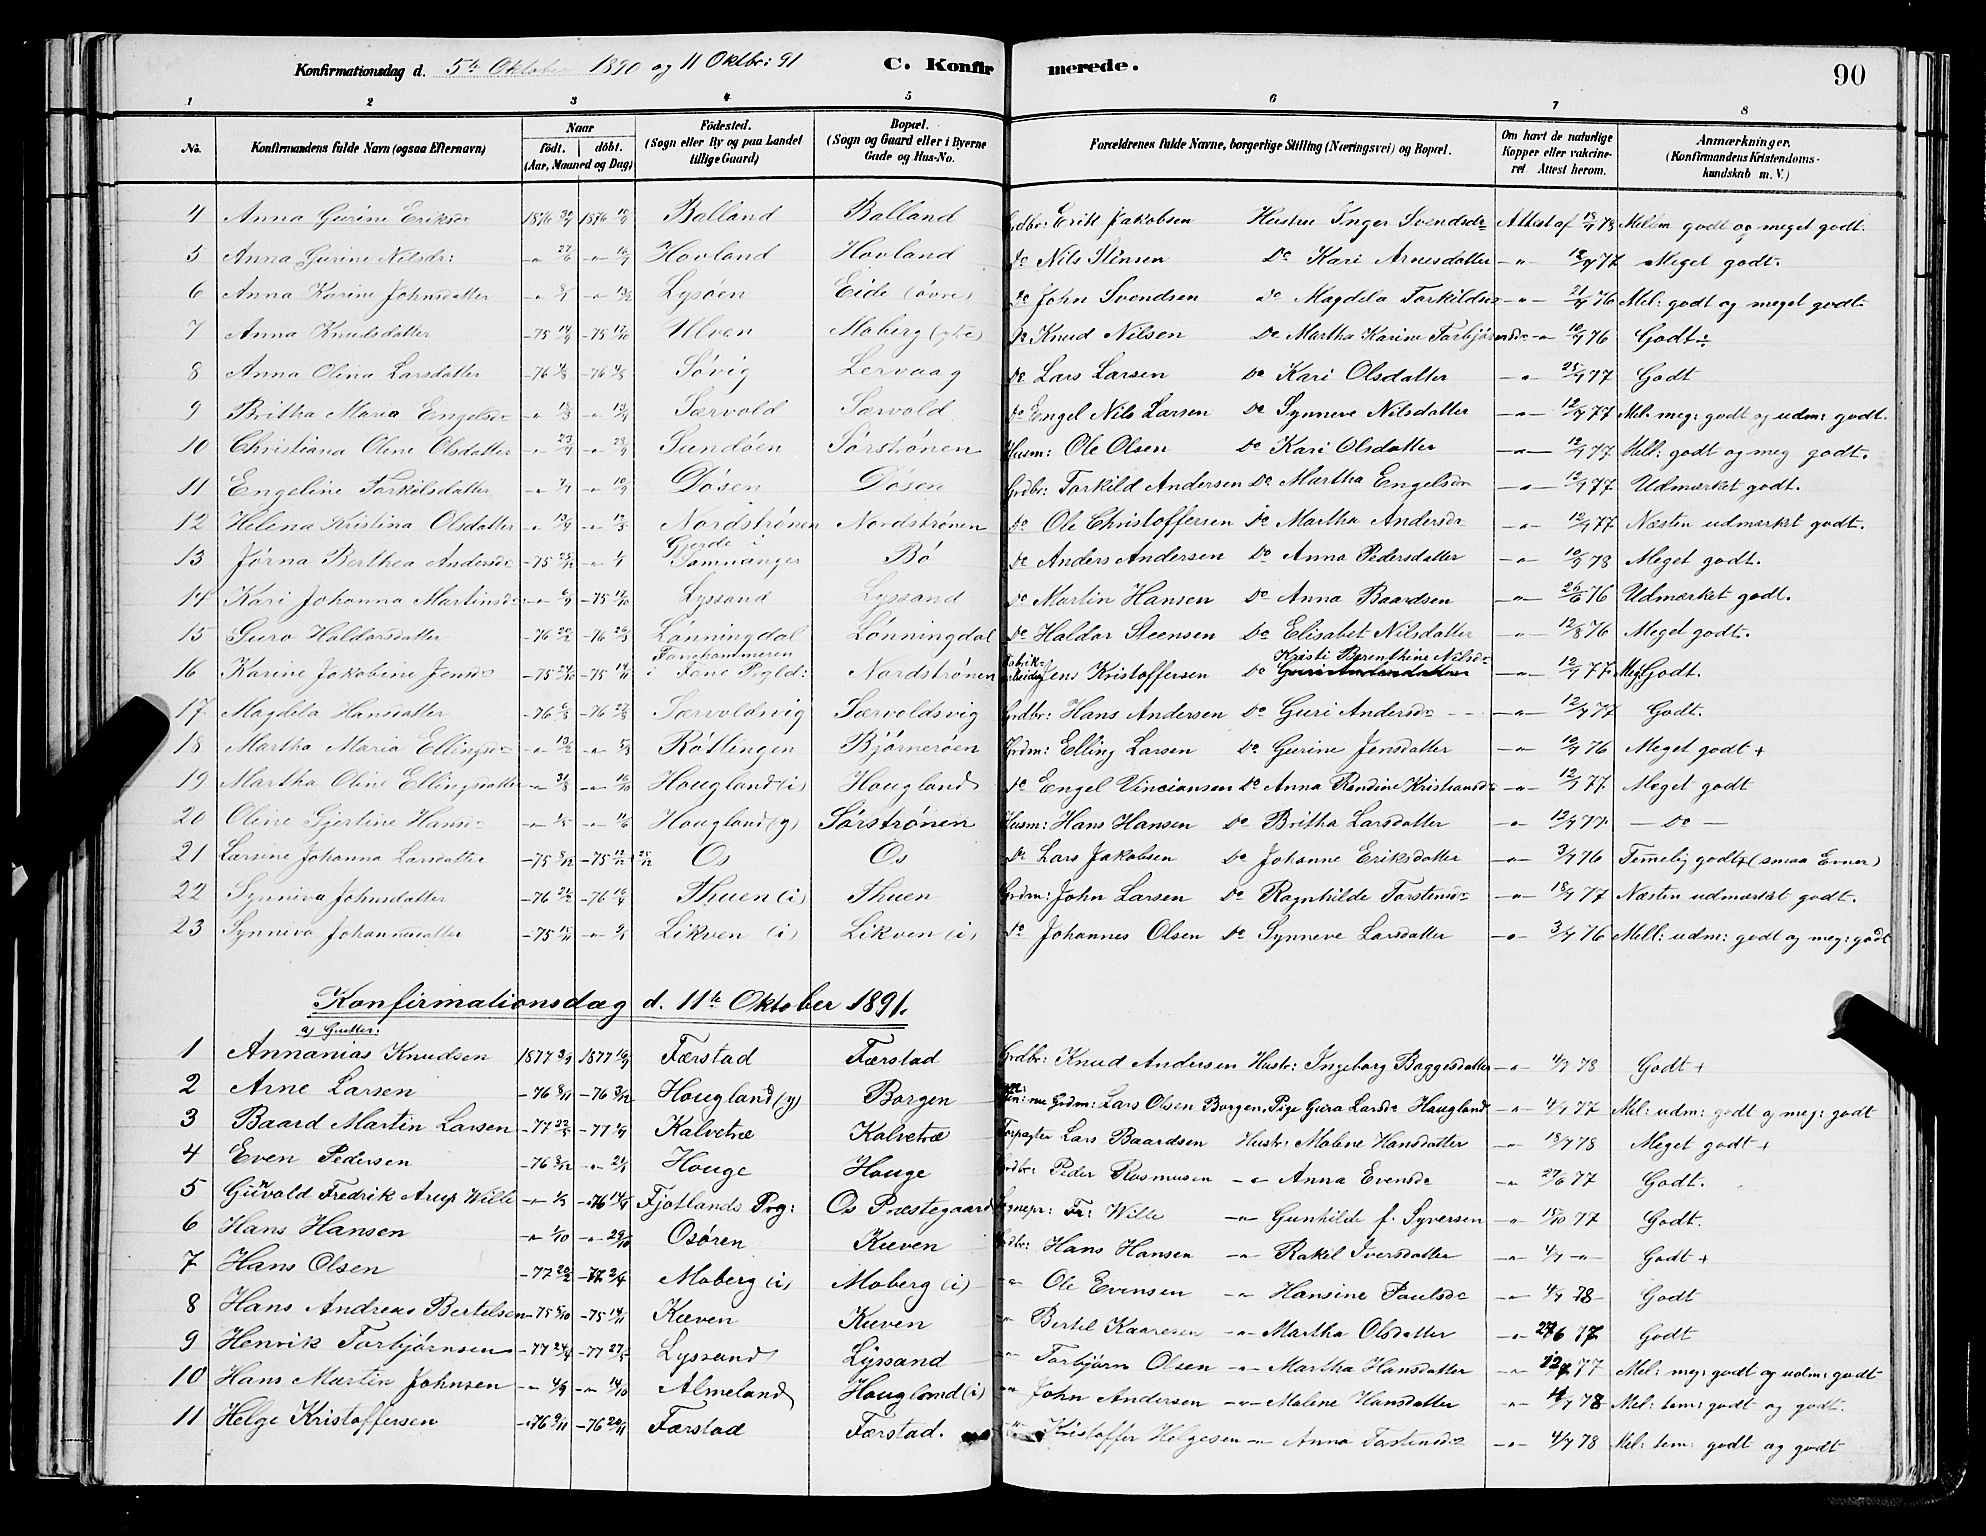 Konfirmationsdag d. 5te Oktober 1890 og 11 Oktbr: 91 C. Konfirmerede. 90
1 2 3 4 5 6 7 8
No. Konfirmandens fulde Navn (ogsaa Efternavn) Naar født. døbt. (Aar, Maaned og Dag) Fødested. (Sogn eller By og paa Landet tillige Gaard) Bopæl. (Sogn og Gaard eller i Byerne Gade og Hus-No. Forældrenes fulde Navne, borgerlige Stilling (Næringsvei) og Bopæl. Om havt de naturlige Kopper eller vakcineret Attest herom. Anmærkninger. (Konfirmandens Kristendomskundskab m. V.)
4 Anna Gurine Eriksdr 1876 1876 Balland Balland Grdbr: Erik Jakobsen Hustru Inger Svendsdr Attest af 78 Mellem godt og meget godt.
5 Anna Gurine Nilsdr: Hovland Hovland Do Nils Stensen Do Kari Arnesdatter 77 Meget godt.
6 Anna Karine Johnsdatter Lysøen Eide (øvre) Do John Svendsen Do Magdela 76 Mel: godt og meget godt
7 Anna Knudsdatter -75 -75 Ulven Moberg Do Knud Nilsen Do Martha Karine 76 Godt
8 Anna Olina Larsdatter -76 -76 Søvig Lervaag Do Lars Larsen Do Kari Olsdatter 77 Godt
9 Britha Maria Engelsdr Særvold Særvold Do Engel Nils Larsen Do Synneve Nilsdatter 12/7 77 Mel. meg: godt og udm: godt.
10 Christiana Oline Olsdatter Sundøen Sørstrønen Husm: Ole Olsen Do Kari Olsdatter 12/7 77 Mell: godt og meg godt.
11 Engeline Torkilsdatter Døsen Døsen Grdbr: Torkild Andersen Do Martha Engelsdr 12/7 77 Udmærket godt.
12 Helena Kristina Olsdatter Nordstrønen Nordstrønen Do Ole Christoffersen Do Martha Andersdr 12/7 77 Næsten udmærket godt.
13 Jørna Berthea Andersdr -75 Gjerde i Samnanger Bø Do Anders Andersen Do Anna Pedersdatter 78 Meget godt.
14 Kari Johanna Martinsdr -75 Lyssand Lyssand Do Martin Hansen Do Anna Baardsen 26/6 76 Udmærket godt.
15 Guro Haldorsdatter -76 -76 Lønningdal Lønningdal Do Haldor Steensen Do Elisabet Nilsdatter 12/8 76 Meget godt.
16 Karine Jakobine Jensdr -75 -75 Fanehammeren i Fane Pgld: Nordstrønen Fabrikarbeider Jens Kristoffersen Do Kristi Berenthine Nilsdr 12/7 77 Meg Godt.
17 Magdela Hansdatter -76 -76 Særvoldsvig Særvoldsvig Grdbr: Hans Andersen Do Guri Andersdr 12/7 77 Godt.
18 Martha Maria Ellingsdr Røttingen Bjørnerøen Grdm: Elling Larsen Do Gurine Jensdatter 76 Meget godt +
19 Martha Oline Ellingsdatter Hougland (i) Hougland Do Engel Vinciansen Do Anna Randine Kristiansdr 12/7 77 Meget godt
20 Oline Gjertine Hansdr Hougland (y) Sørstrønen Husm: Hans Hansen Do Britha Larsdatter 12/7 77 - Do -
21 Larsine Johanna Larsdatter -75 -75 Os Os Do Lars Jakobsen Do Johanne Eriksdatter 3/7 76 Temmelig godt + (smaa Evner)
22 Synneva Johnsdatter -76 -76 Thuen (i) Thuen Grdm: John Larsen Do Ragnhilde Torstensdr 18/7 77 Næsten udmærket godt.
23 Synneva Johannesdatter -75 Likven (i) Likven (i) Do Johannes Olsen Do Synneve Larsdatter 3/7 76 Mell: udm: godt og meg: godt
Konfirmationsdag d. 11te Oktober 1891.
a) Gutter:
1 Annanias Knudsen 1877 1877 Færstad Færstad Grdbr: Knud Andersen Hustr: Ingeborg Baggesdatter 4/7 78 Godt +
2 Arne Larsen -76 -76 Hougland (y) Borgen Grdm: Lars Olsen Borgen, Pige Gura Larsdr Haugland 4/7 77 Mel: udm: godt og meg: godt
3 Baard Martin Larsen -77 -77 Kalvetræ Kalvetræ Forpagter Lars Baardsen Hustr: Malene Hansdatter 18/7 78 Meget godt +
4 Even Pedersen -76 Houge Houge Grdbr: Peder Rasmusen Anna Evensdr 27/6 77 Godt.
5 Gunvald Fredrik Arup Wille -76 Fjotlands Prg: Os Præstegaard Sognepr: Fr: Wille Gunhilde f. Syversen 15/10 77 Godt.
6 Hans Hansen Osøren Kuven Grdbr: Hans Hansen Rakil Iversdatter 4/7 Godt +
7 Hans Olsen -77 -77 Moberg (i) Moberg (i) Ole Evensen Hansine Paulsdr 4/7 78 Godt
8 Hans Andreas Bertelsen -75 -75 Kuven Kuven Bertel Kaaresen Martha Olsdatter 27/6 77 Godt
9 Henrik Torbjørnsen -77 -77 Lyssand Lyssand Torbjørn Olsen Martha Hansdatter 77 Mel: meg: godt og udm: godt
10 Hans Martin Johnsen Almeland Hougland (i) John Andersen Malene Hansdatter 4/7 78 Mel: tem: godt og godt.
11 Helge Kristoffersen -76 -76 Færstad Færstad. Kristoffer Helgesen Anna Tostensdr 4/7 78 Mel: tem: godt og godt